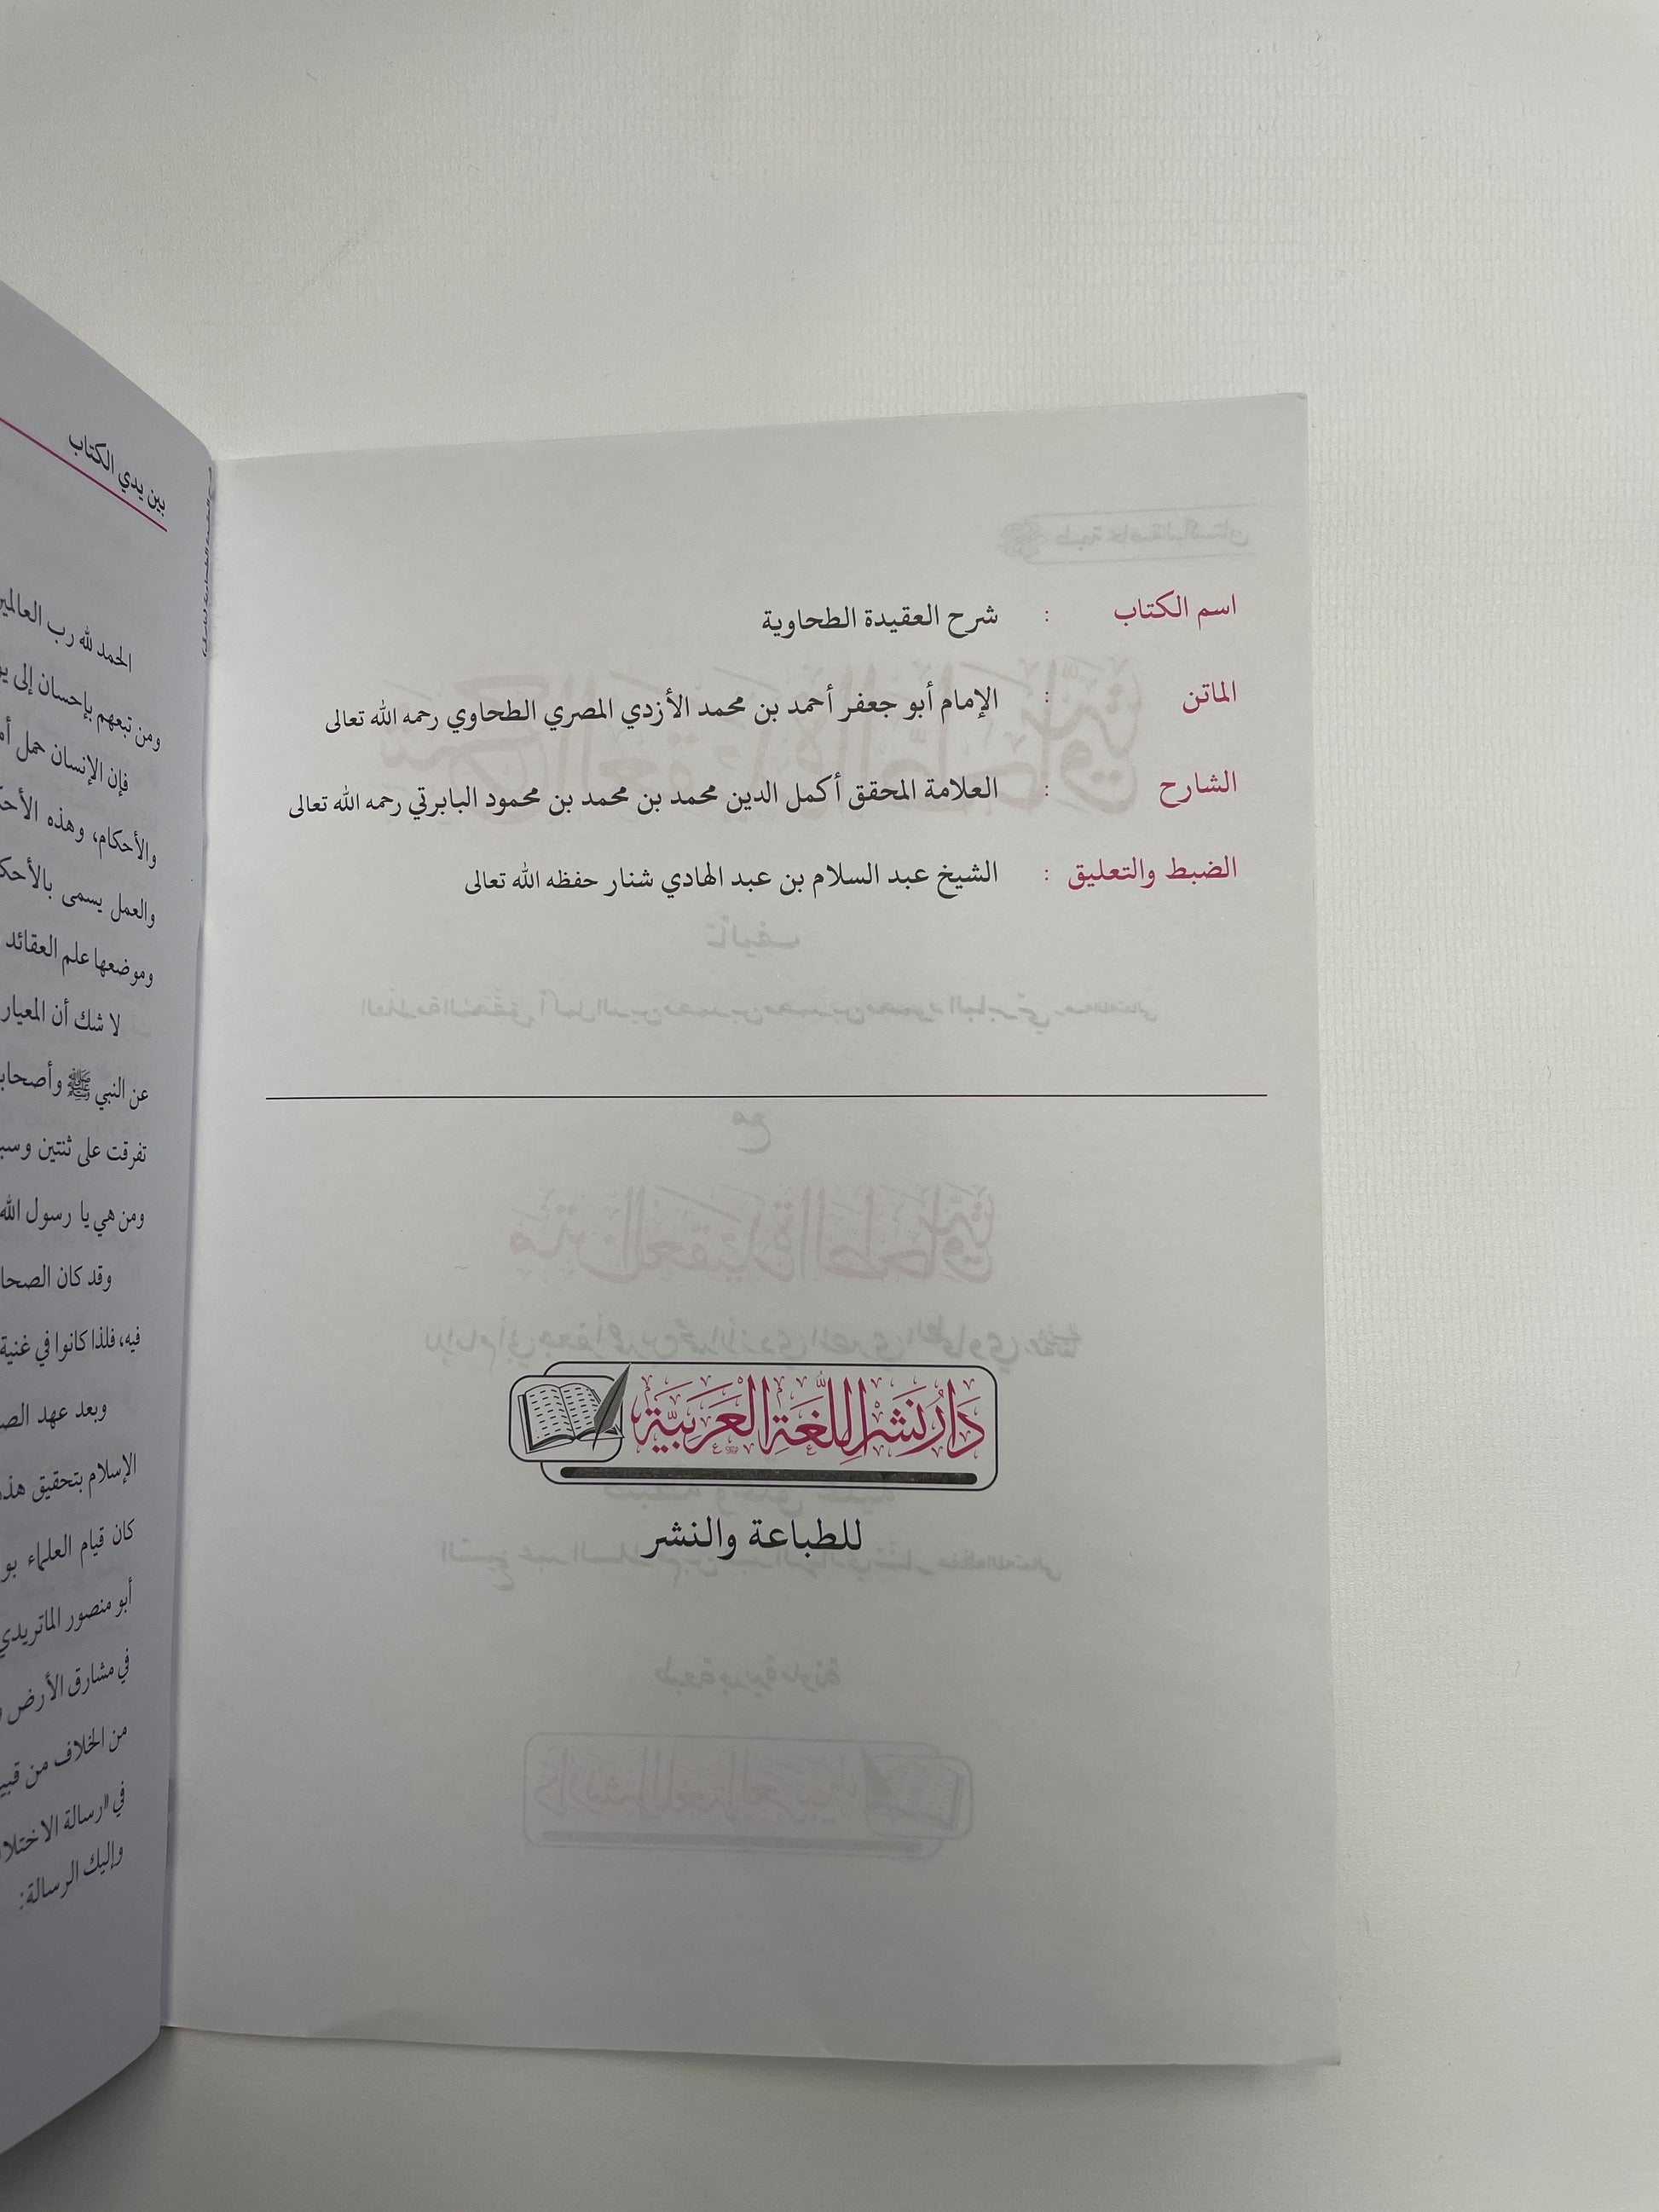 اسم الكتاب : شرح العقيدة الطحاوية
الماتن : الإمام أبو جعفر أحمد بن محمد الأزدي المصري الطحاوي رحمه الله تعالى
الشارح : العلامة المحقق أكمل الدين محمد بن محمد بن محمود البابرتي رحمه الله تعالى
الضبط والتعليق : الشيخ عبد السلام بن عبد الهادي شنار حفظه الله تعالى
دَارُ نَشْرِ اللُّغَةِ الْعَرَبِيَّةِ
للطباعة والنشر
بين يدي الكتاب
الحمد لله رب العالمين
ومن تبعهم بإحسان إلى
فإن الإنسان حمل
والأحكام، وهذه
والعمل يسمى
وموضعها علم العقائد
لا شك أن المعيار
عن النبي ﷺ
تفرقت على ثنتين
ومن هي يا رسول الله
وقد كان
فيه، فلذا كانوا في غنية
وبعد عهد
الإسلام بتحقيق
كان قيام العلماء
أبو منصور الماتريدي
في مشارق الأرض
من الخلاف من
في «رسالة
وإليك الرسالة: